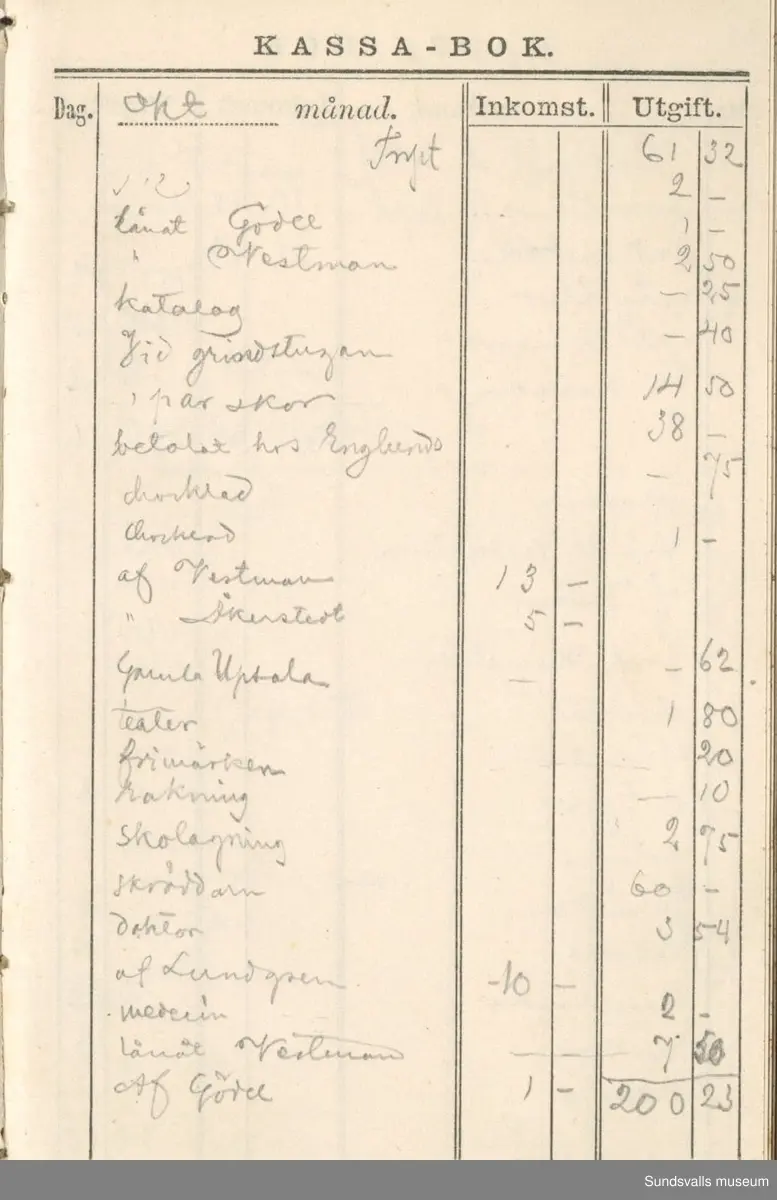 KASSA-BOK.
Dag. Okt månad. Inkomst. Utgift.
Trpt 61 32
2 –
lånat Gödel 1 –
" Vestman 2 50
katalog – 25
Vid grindstugan – 40
1 par skor 14 50
betalat hos Englunds 38 –
choklad – 75
Choklad 1 –
af Vestman 13 –
" Åkerstedt 5 –
Gamla Upsala – – 62
teater 1 80
frimärken 20
Rakning – 10
Skolagning 2 75
skräddarn 60 –
doktor 3 54
af Lundgren 10 –
medecin 2 –
lånat Vestman – 7 50
Af Gödel 1 – 200 23
Sundsvalls museum